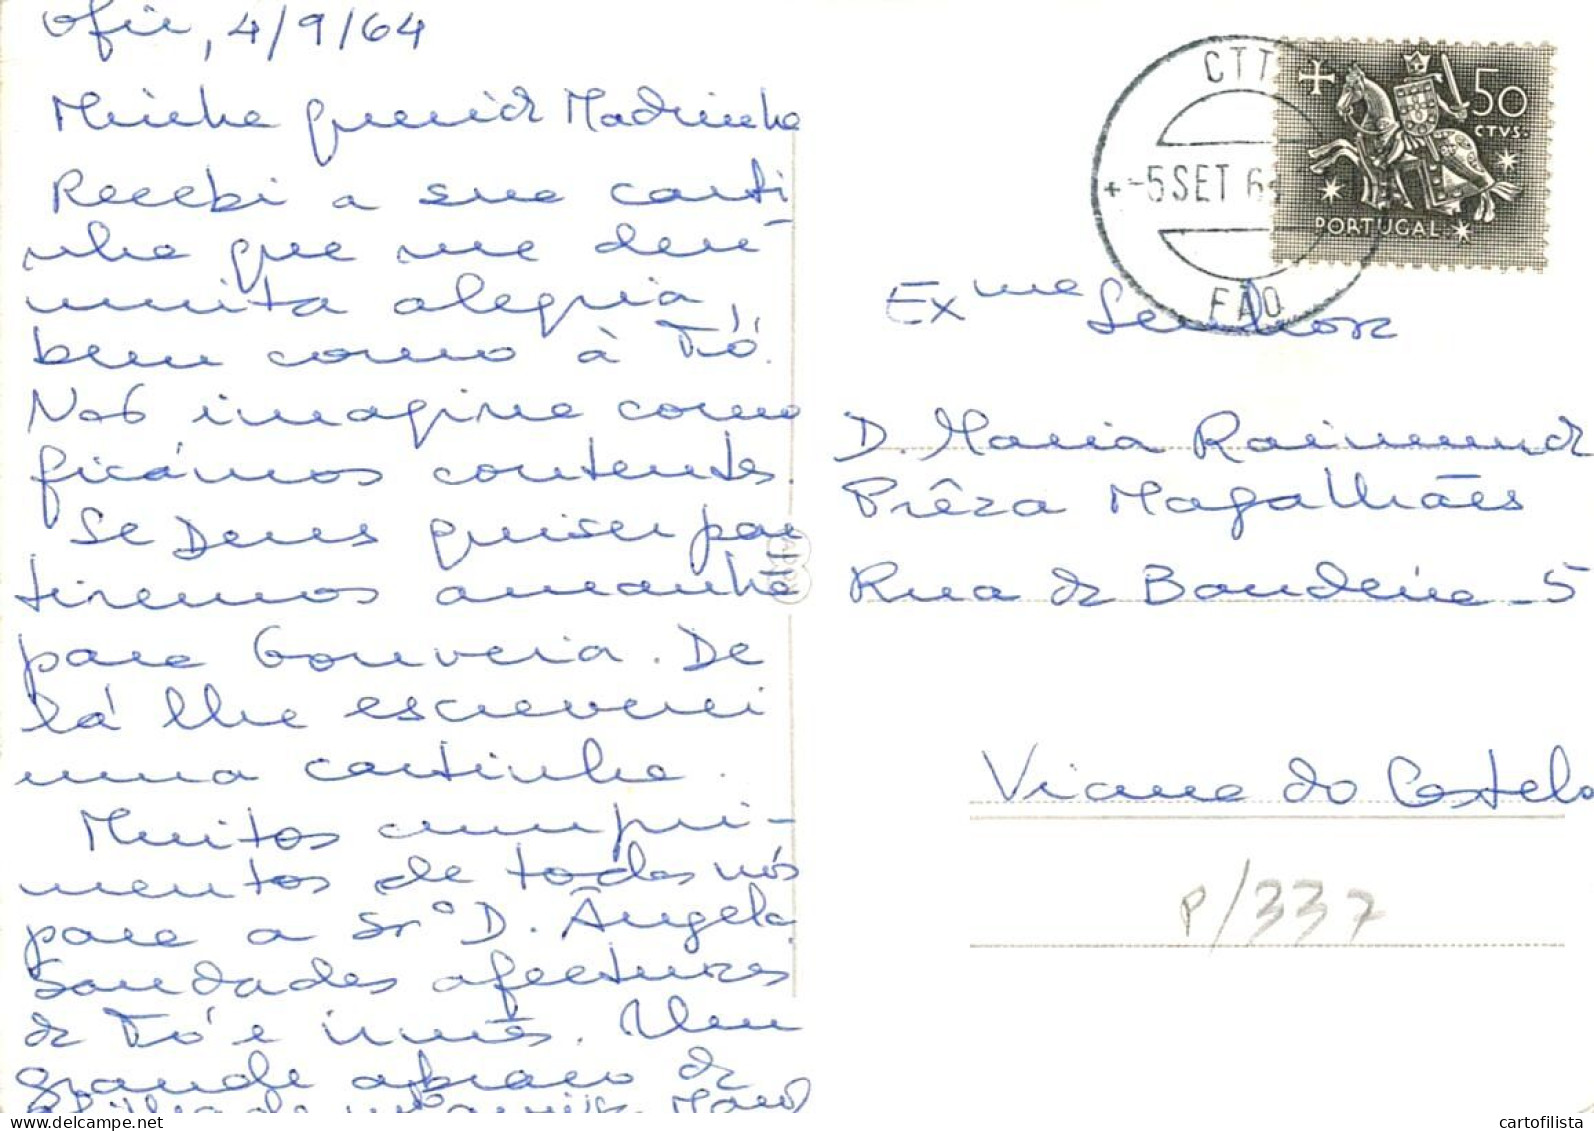 Ofir, 4/9/64
Minha querida Madrinha
Recebi a sua carti
nha que me deu
muita alegria,
bem como à Fió.
Nós imagine como
ficámos contentes.
Se Deus quiser par
tiremos amanhã
para Gouveia. De
lá lhe escreverei
uma cartinha.
Muitos cumpri-
mentos de todos nós
para a Srª D. Ângela.
Saudades afectuosas
da Fió e irmãs. Um
grande abraço da
CTT
-5 SET 64
FÃO
50
CTVS.
PORTUGAL
Exma Senhora
D. Maria Raimunda
Prêza Magalhães
Rua da Bandeira - 5
Viana do Castelo
P/337
cartofilista